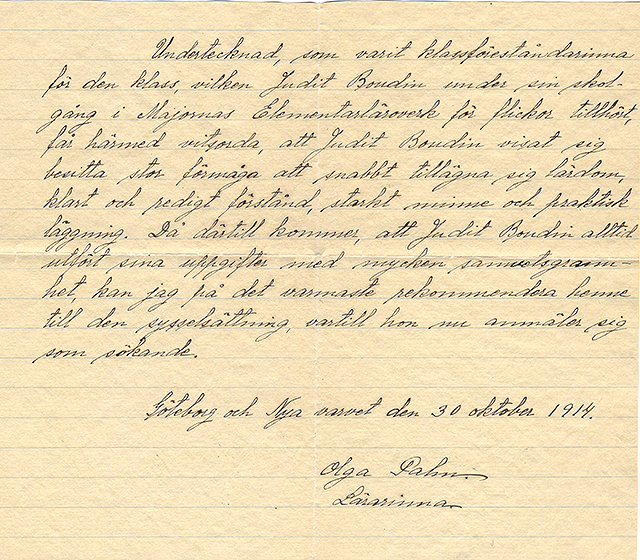 Undertecknad, som varit klassföreståndarinna
för den klass, vilken Judit Boudin under sin skol-
gång i Majornas Elementarläroverk för flickor tillhört,
får härmed vitsorda, att Judit Boudin visat sig
besitta stor förmåga att snabbt tillägna sig lärdom,
klart och redigt förstånd, starkt minne och praktisk
läggning. Då därtill kommer, att Judit Boudin alltid
utfört sina uppgifter med mycken samvetsgrann-
het, kan jag på det varmaste rekommendera henne
till den sysselsättning, vartill hon nu anmäler sig
som sökande.
Göteborg och Nya varvet den 30 oktober 1914.
Olga Palm.
Lärarinna